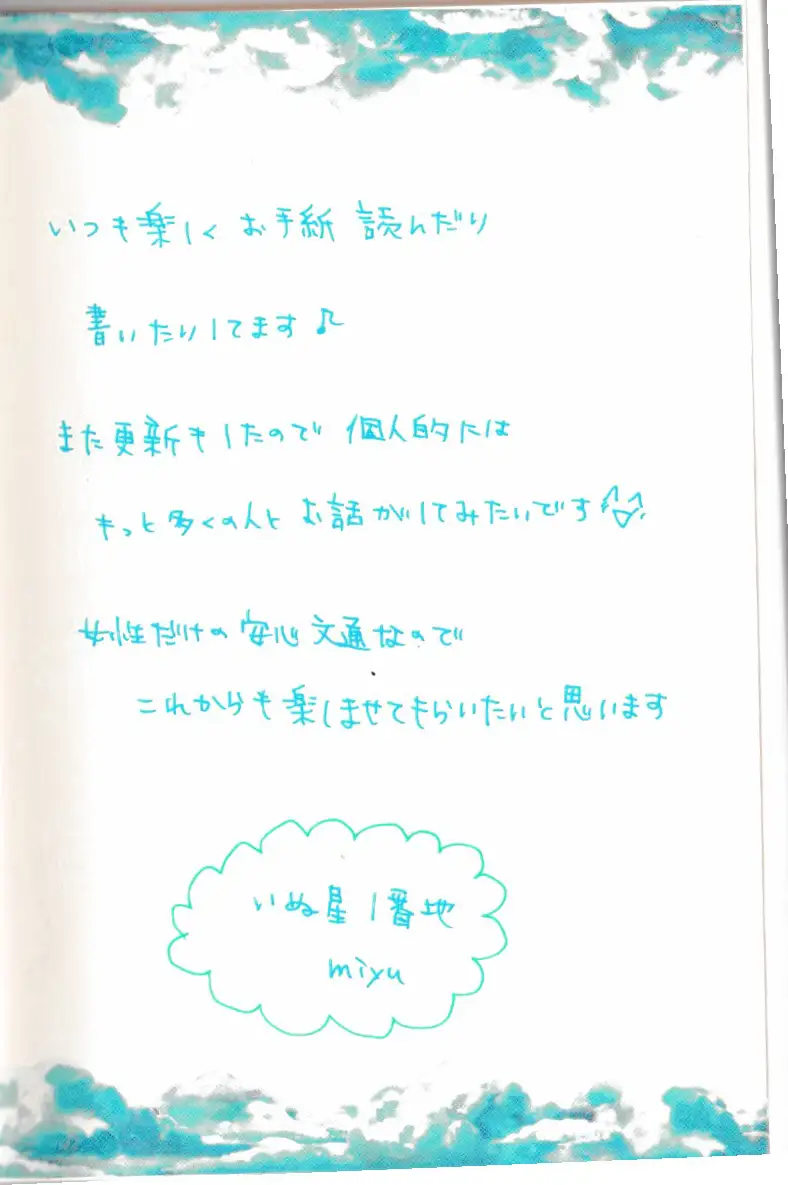 いつも楽しく お手紙 読んだり
書いたりしてます♪
また更新もしたので 個人的には
もっと多くの人と お話がしてみたいです
女性だけの 安心 文通なので
これからも楽しませてもらいたいと思います
いぬ星1番地
miyu